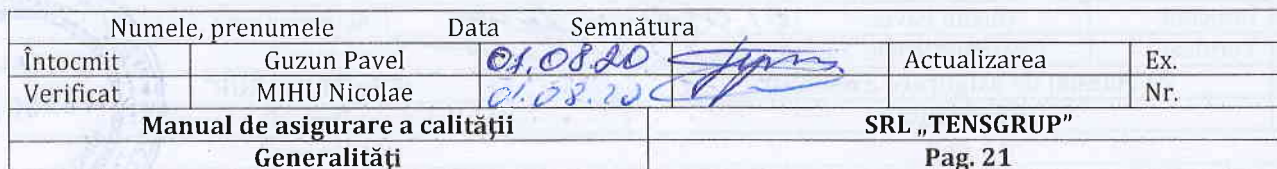 Numele, prenumele Data Semnătura
Întocmit Guzun Pavel 01.08.20 Actualizarea Ex.
Verificat MIHU Nicolae 01.08.20 Nr.
Manual de asigurare a calității SRL „TENSGRUP”
Generalități Pag. 21